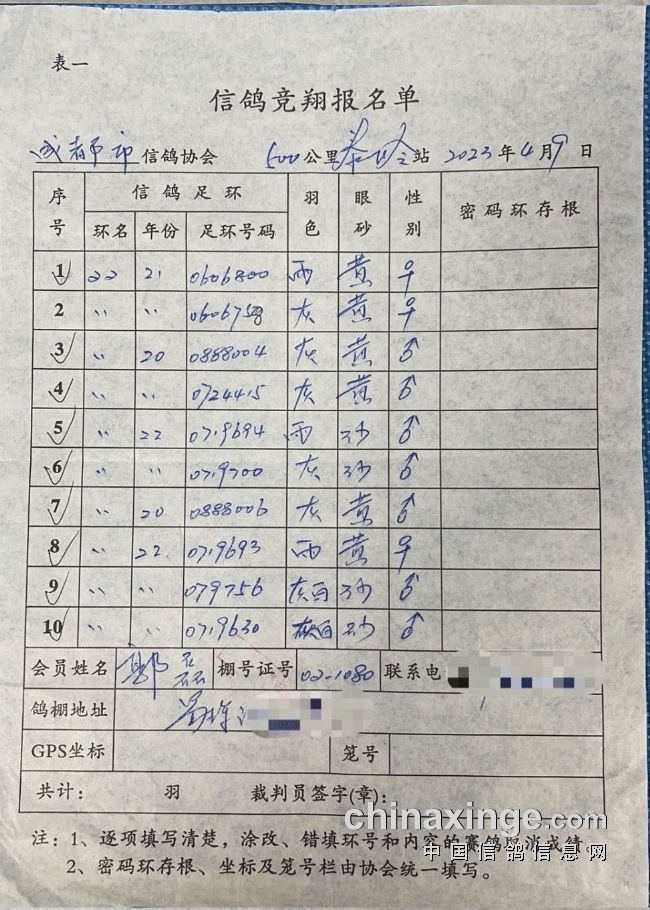 表一
信鸽竞翔报名单
成都市 信鸽协会 500公里 站 2023年4月9日
序号 信鸽足环 羽色 眼砂 性别 密码环存根
环名 年份 足环号码
1 22 21 0606800 雨 黄 ♀
2 〃 〃 灰 黄 ♀
3 〃 20 0888004 灰 黄 ♂
4 〃 〃 0724415 灰 黄 ♂
5 〃 22 0719694 雨 砂 ♂
6 〃 〃 0719700 灰 砂 ♂
7 〃 20 0888006 灰 黄 ♂
8 〃 22 0719693 雨 黄 ♀
9 〃 〃 0719756 灰白 砂 ♂
10 〃 〃 0719630 灰白 砂 ♂
会员姓名 磊 棚号证号 02-1080 联系电
鸽棚地址
GPS坐标 笼号
共计: 羽 裁判员签字(章):
注:1、逐项填写清楚,涂改、错填环号和内容的赛鸽取消成绩。
2、密码环存根、坐标及笼号栏由协会统一填写。
chinaxinge.com
中国信鸽信息网